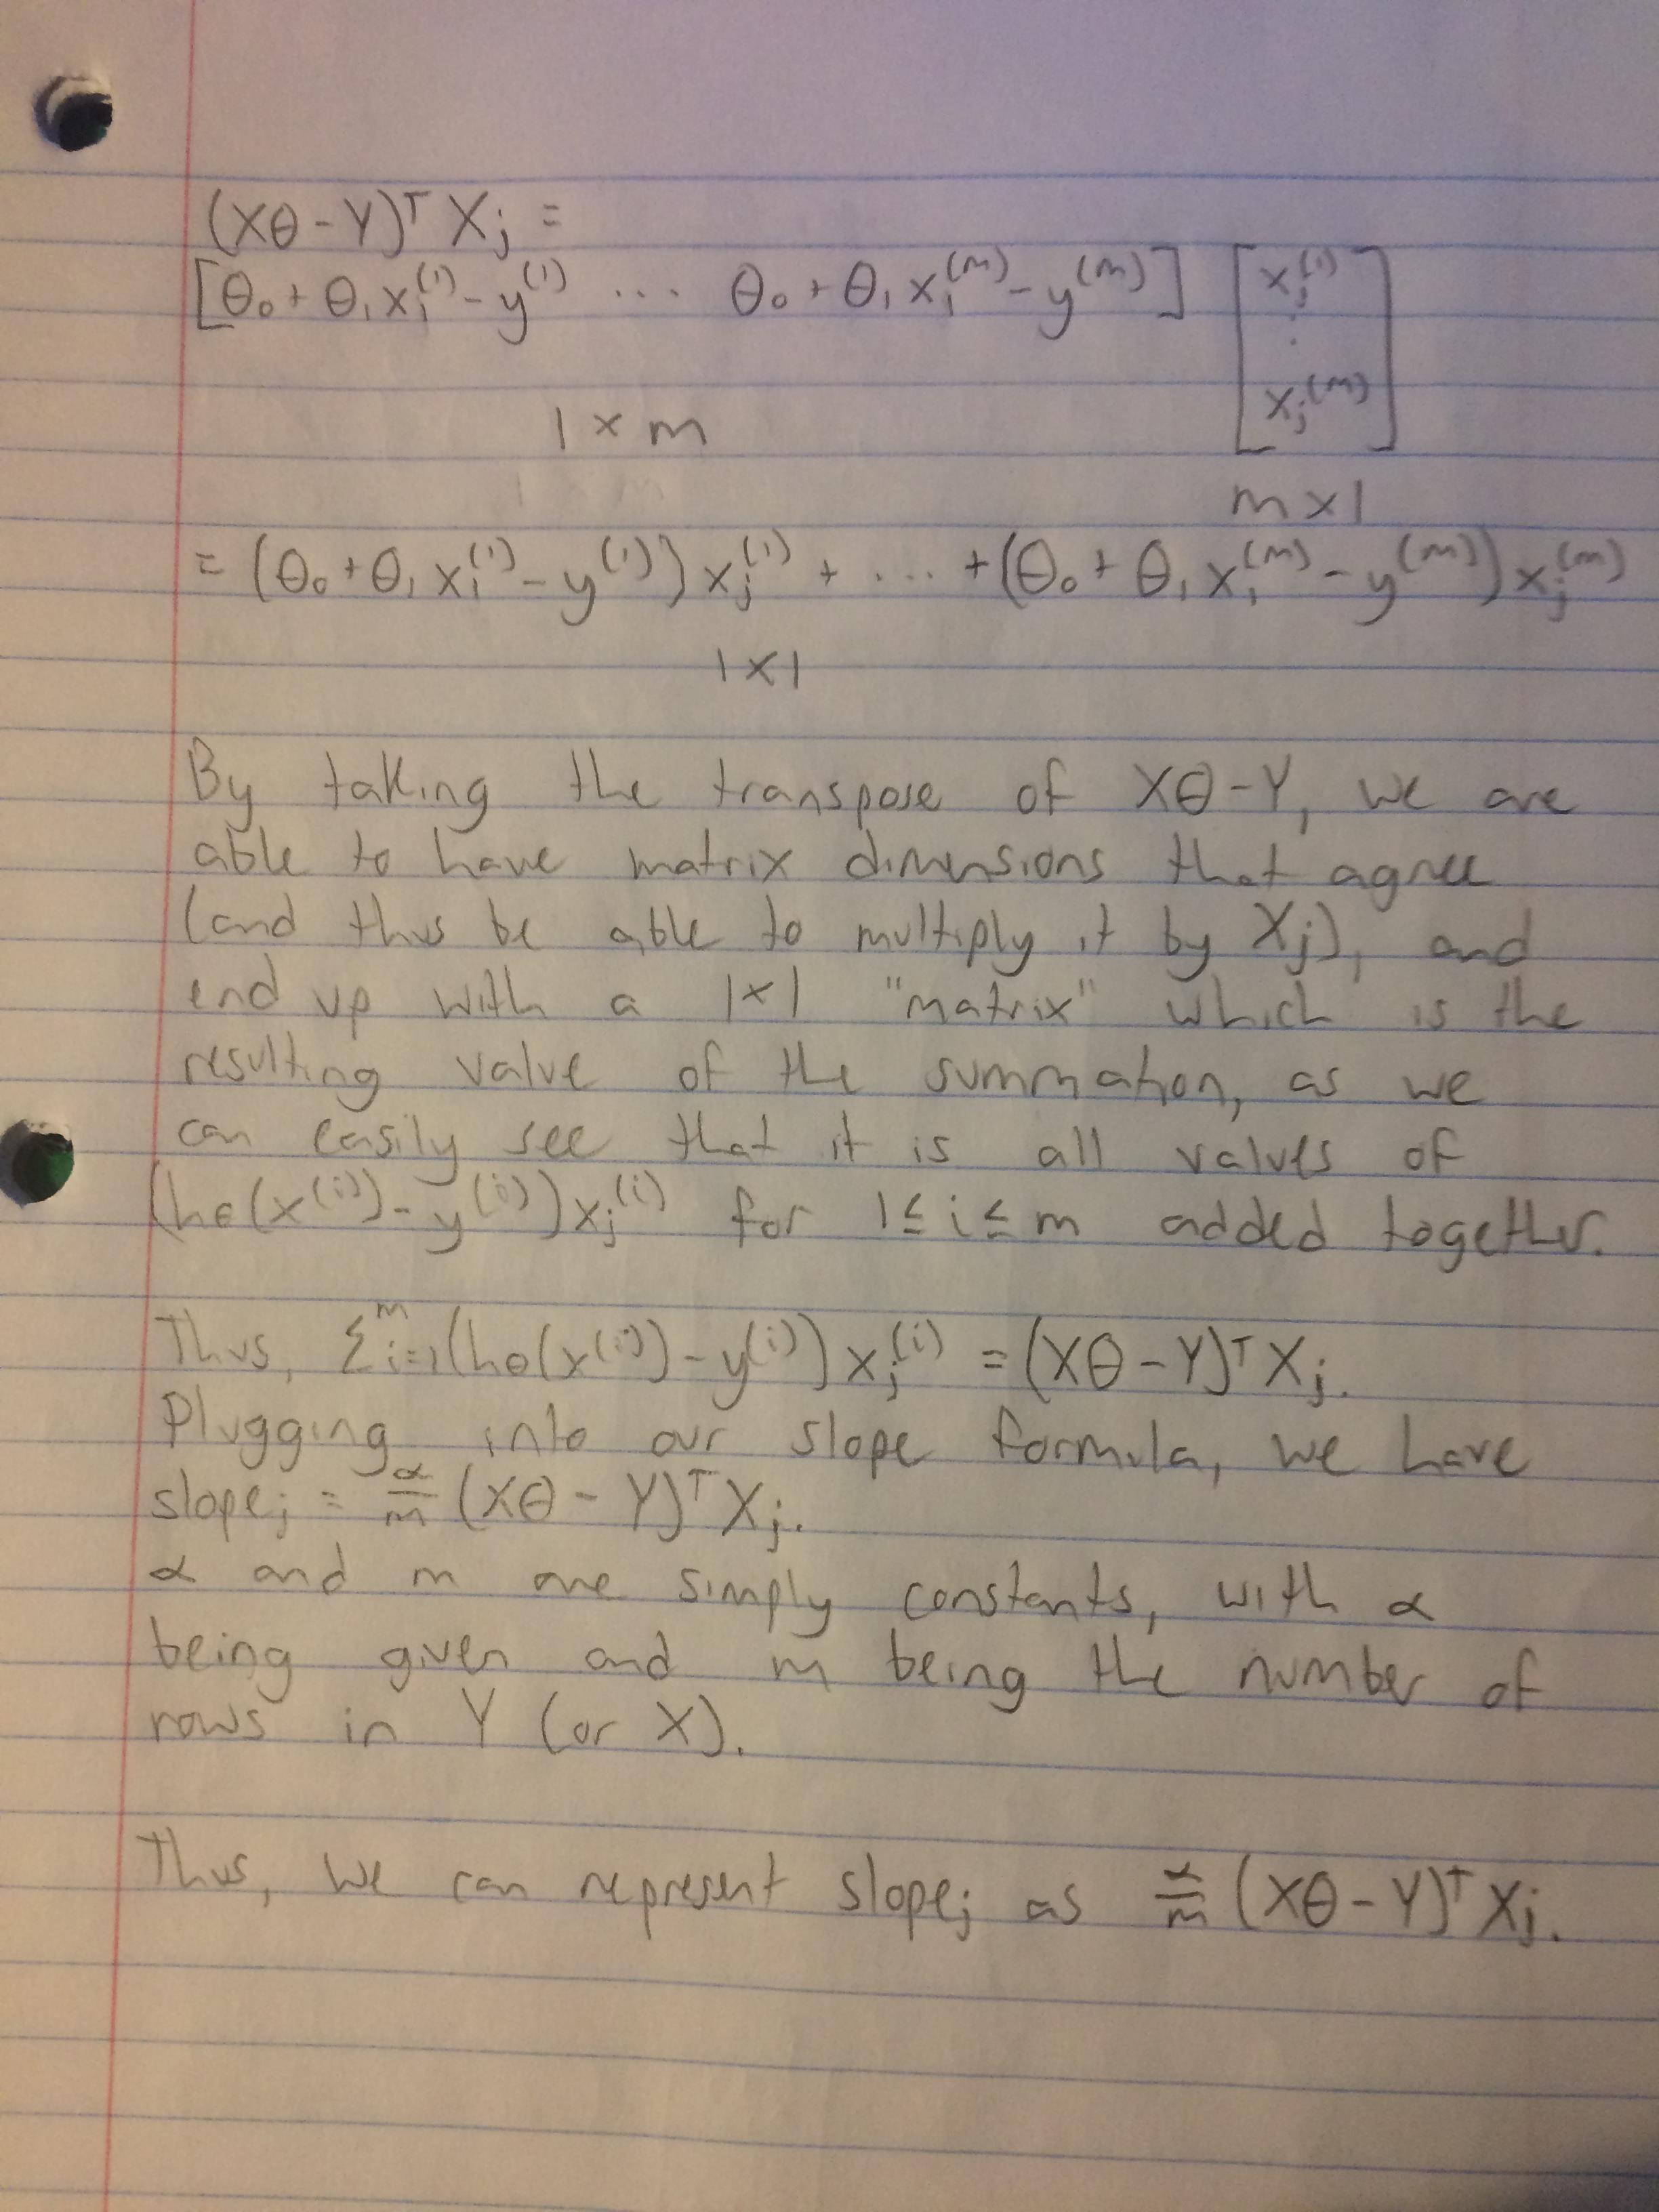 (Xθ - Y)ᵀ Xⱼ =
[θ₀ + θ₁x₁⁽¹⁾ - y⁽¹⁾ ... θ₀ + θ₁x₁⁽ᵐ⁾ - y⁽ᵐ⁾] [xⱼ⁽¹⁾ ⋮ xⱼ⁽ᵐ⁾]
1 × m m × 1
= (θ₀ + θ₁x₁⁽¹⁾ - y⁽¹⁾) xⱼ⁽¹⁾ + ... + (θ₀ + θ₁x₁⁽ᵐ⁾ - y⁽ᵐ⁾) xⱼ⁽ᵐ⁾
1 × 1
By taking the transpose of Xθ - Y, we are
able to have matrix dimensions that agree
(and thus be able to multiply it by Xⱼ), and
end up with a 1×1 "matrix" which is the
resulting value of the summation, as we
can easily see that it is all values of
(hθ(x⁽ⁱ⁾) - y⁽ⁱ⁾) xⱼ⁽ⁱ⁾ for 1 ≤ i ≤ m added together.
Thus, Σᵐᵢ₌₁(hθ(x⁽ⁱ⁾) - y⁽ⁱ⁾) xⱼ⁽ⁱ⁾ = (Xθ - Y)ᵀ Xⱼ.
Plugging into our slope formula, we have
slopeⱼ = α/m (Xθ - Y)ᵀ Xⱼ.
α and m are simply constants, with α
being given and m being the number of
rows in Y (or X).
Thus, we can represent slopeⱼ as α/m (Xθ - Y)ᵀ Xⱼ.